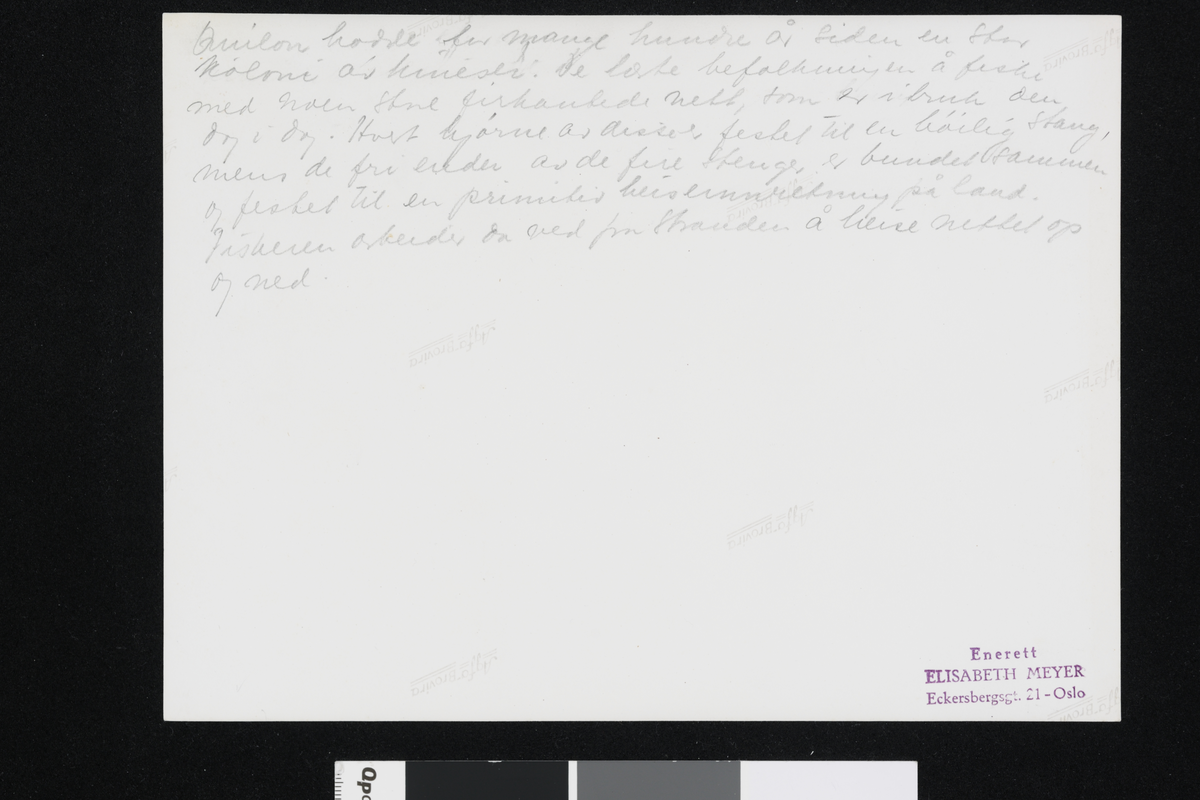 Quilon hadde for mange hundre år siden en stor
koloni av kinesere. De lærte befolkningen å fiske
med noen store firkantede nett, som er i bruk den
dag i dag. Hvert hjørne av disse er festet til en böielig stang,
mens de fri ender av de fire stenger er bundet sammen
og festet til en primitiv heiseinnretning på land.
Fiskeren arbeider da ved fra stranden å heise nettet op
og ned.
Agfa Brovira
Agfa Brovira
Agfa Brovira
Agfa Brovira
Enerett
ELISABETH MEYER
Eckersbergsgt. 21 - Oslo